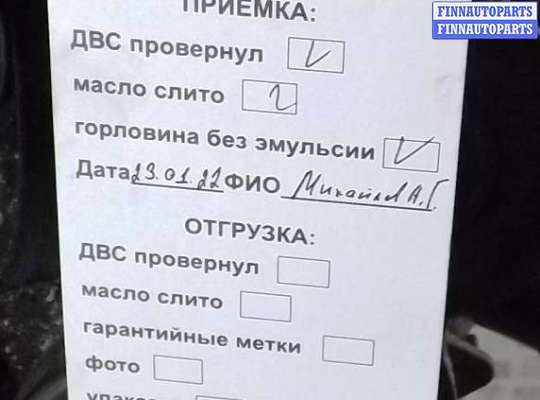 FINNAUTOPARTS
FINNAUTOPARTS
ПРИЕМКА:
ДВС провернул
масло слито
горловина без эмульсии
Дата 29.01.22 ФИО Михайлов А.Г.
ОТГРУЗКА:
ДВС провернул
масло слито
гарантийные метки
фото